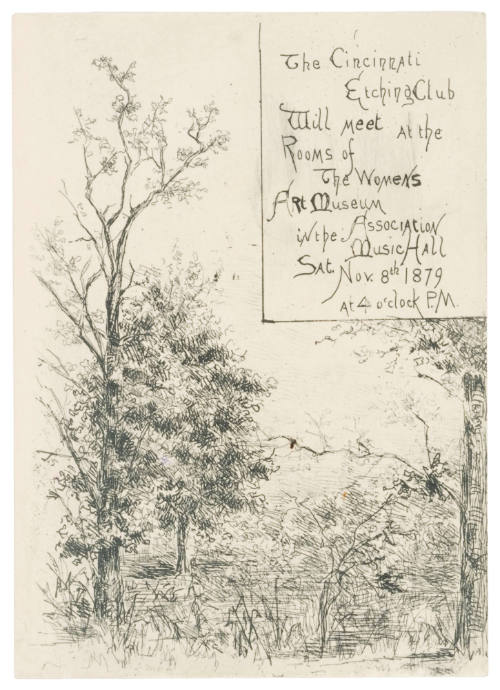 The Cincinnati
Etching Club
Will meet at the
Rooms of
The Women's
Art Museum
in the Association
Music Hall
Sat. Nov. 8th 1879
At 4 o'clock P.M.